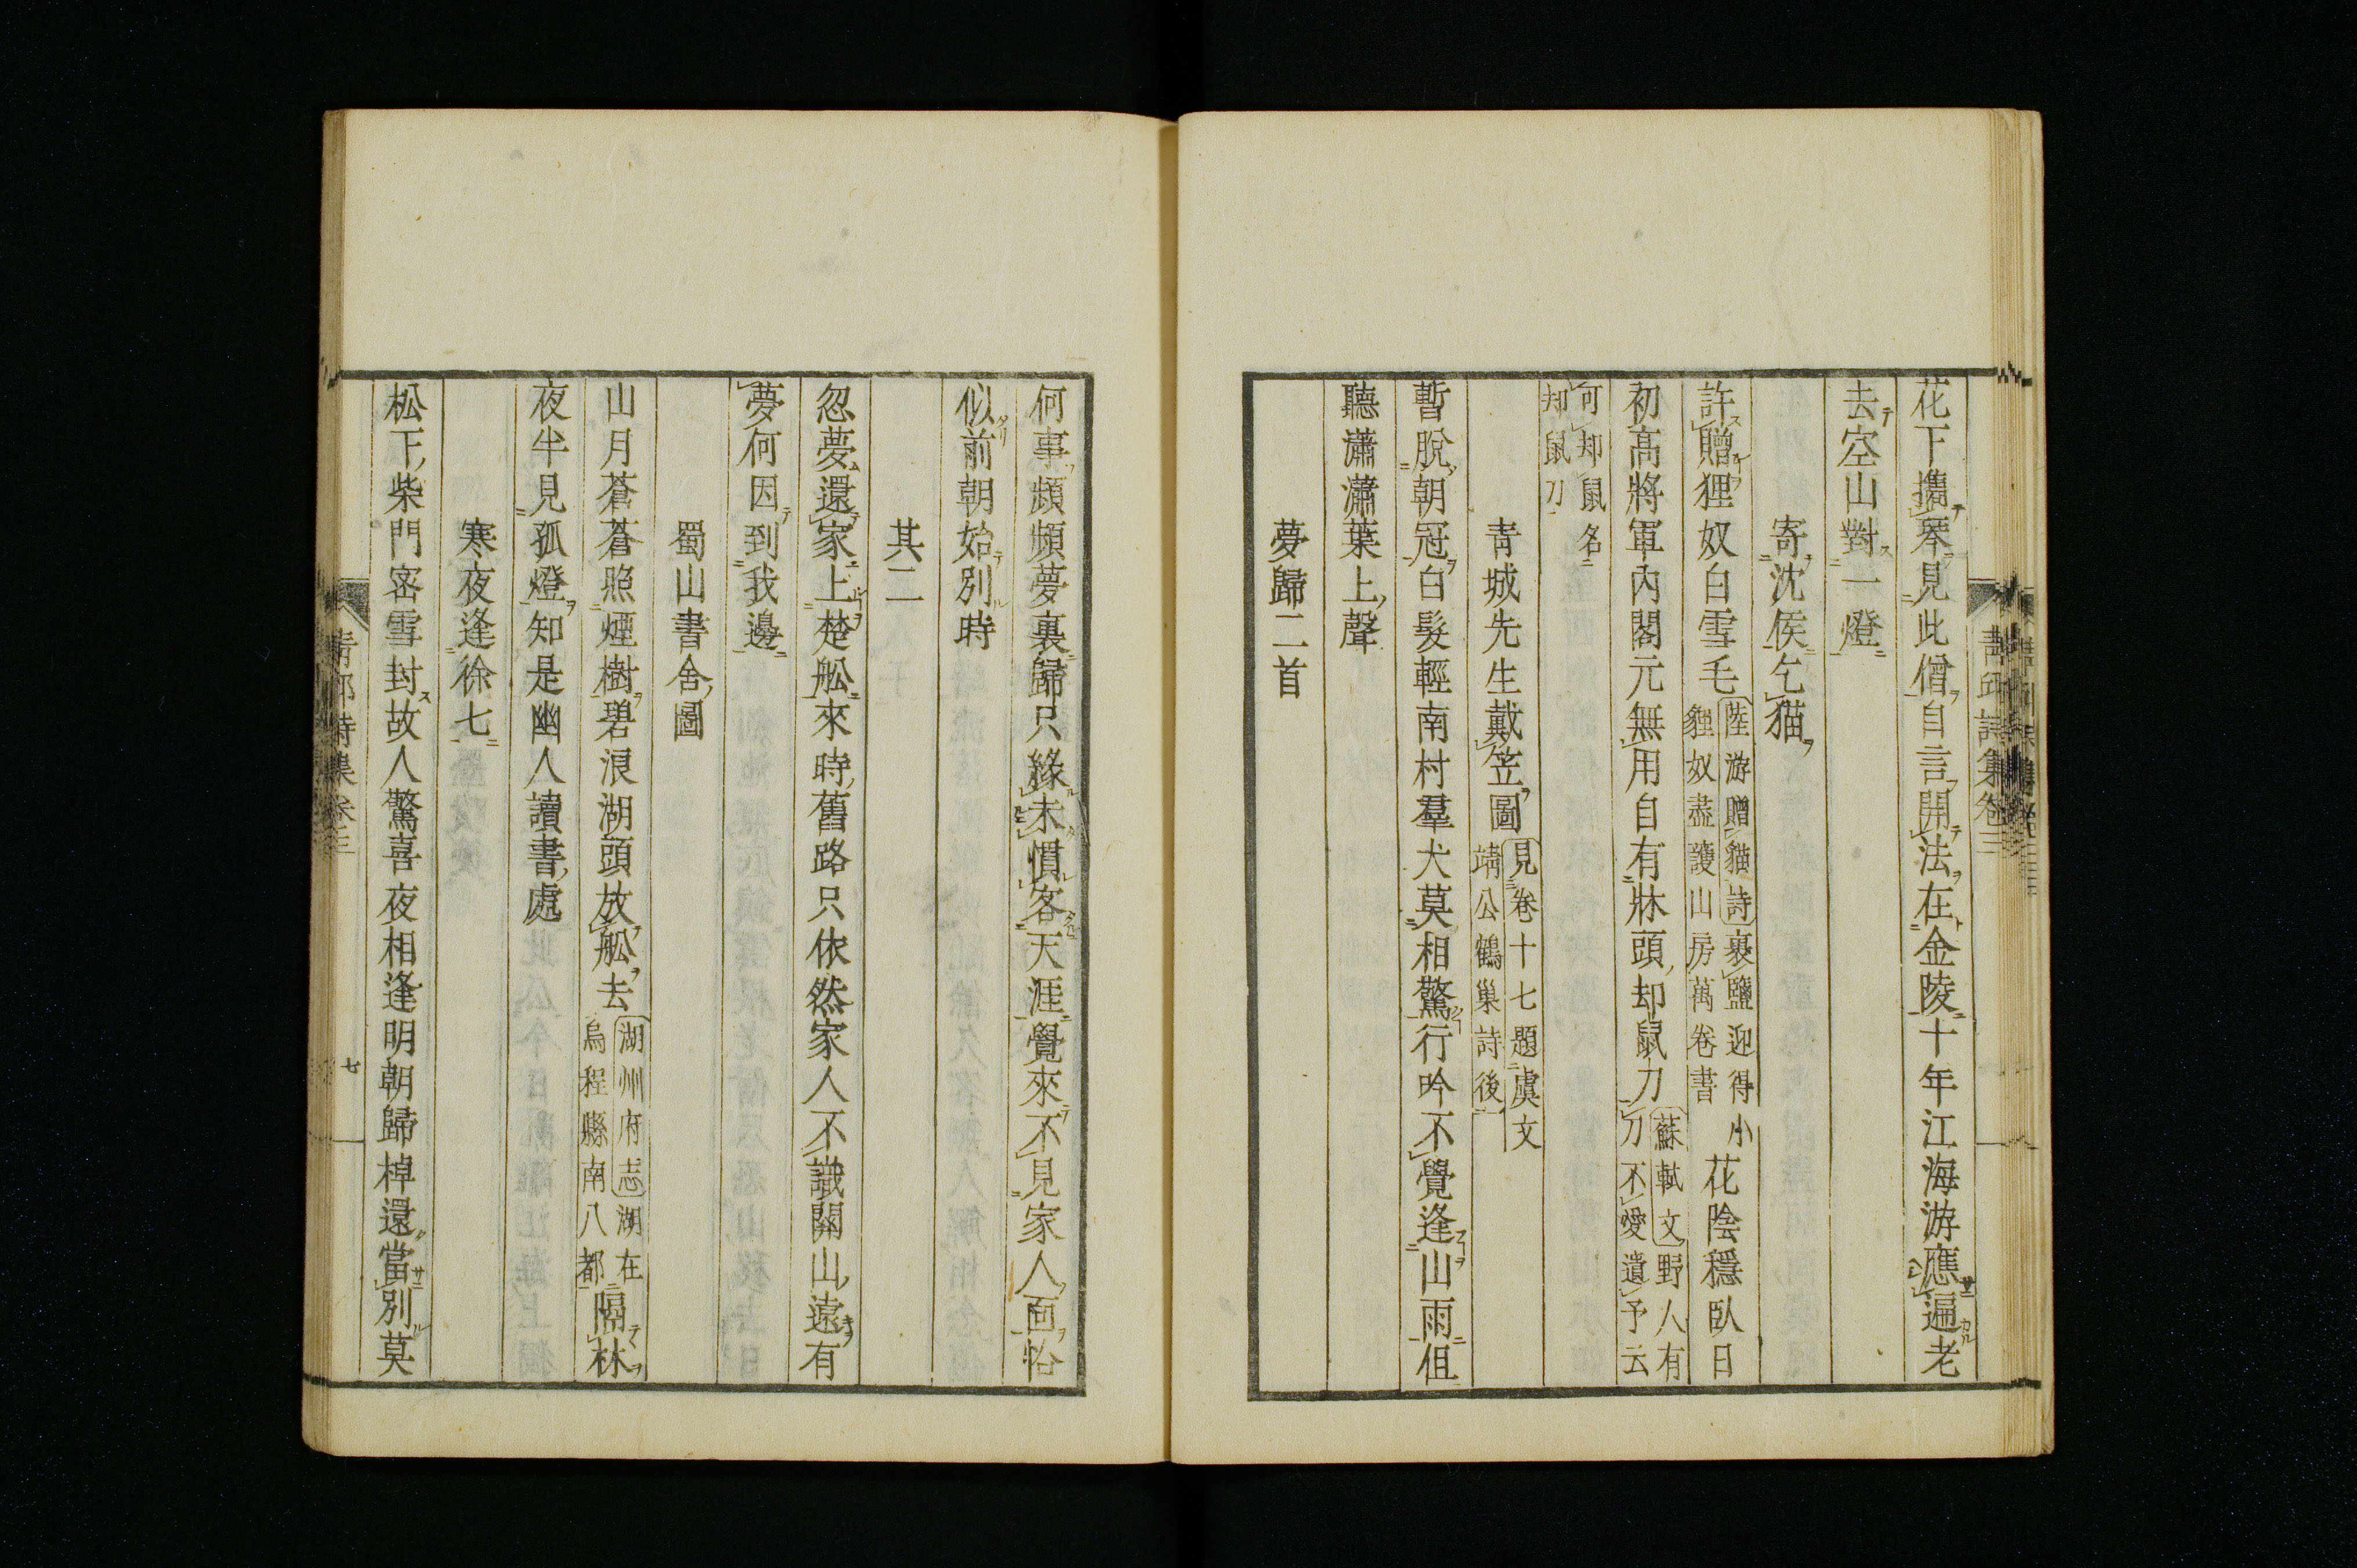 花下攜琴見此僧自言開法在金陵十年江海游應遍老
去空山對一燈
寄沈侯乞貓
許贈狸奴白雪毛陸游贈貓詩裹鹽迎得小
貍奴盡護山房萬卷書花陰穩臥日
初高將軍內閣元無用自有牀頭却鼠刀蘇軾文野人有
刀不愛遺予云
可却鼠名
却鼠刀
青城先生戴笠圖見卷十七題虞文
靖公鶴巢詩後
暫脫朝冠白髮輕南村羣犬莫相驚行吟不覺逢山雨但
聽瀟瀟葉上聲
夢歸二首
青邱詩集卷三
何事頻頻夢裏歸只緣未慣客天涯覺來不見家人面恰
似前朝始別時
其二
忽夢還家上楚舩來時舊路只依然家人不識關山遠有
夢何因到我邊
蜀山書舍圖
山月蒼蒼照煙樹碧浪湖頭放舩去湖州府志湖在
烏程縣南八都隔林
夜半見孤燈知是幽人讀書處
寒夜逢徐七
松下柴門宻雪封故人驚喜夜相逢明朝歸棹還當別莫
青邱詩集卷三
七